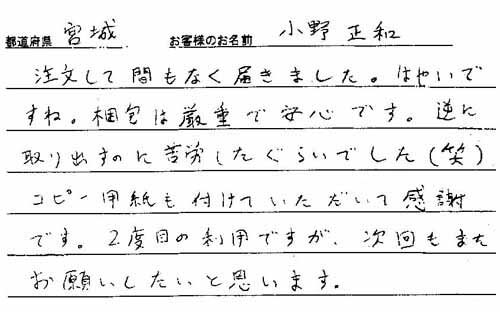 都道府県 宮城 お客様のお名前 小野 正和
注文して間もなく届きました。はやいで
すね。梱包は厳重で安心です。逆に
取り出すのに苦労したぐらいでした(笑)
コピー用紙も付けていただいて感謝
です。2度目の利用ですが、次回もまた
お願いしたいと思います。